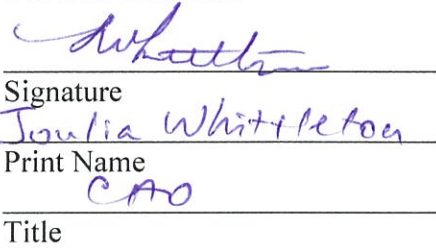 Signature
Joulia Whittleton
Print Name
CAO
Title